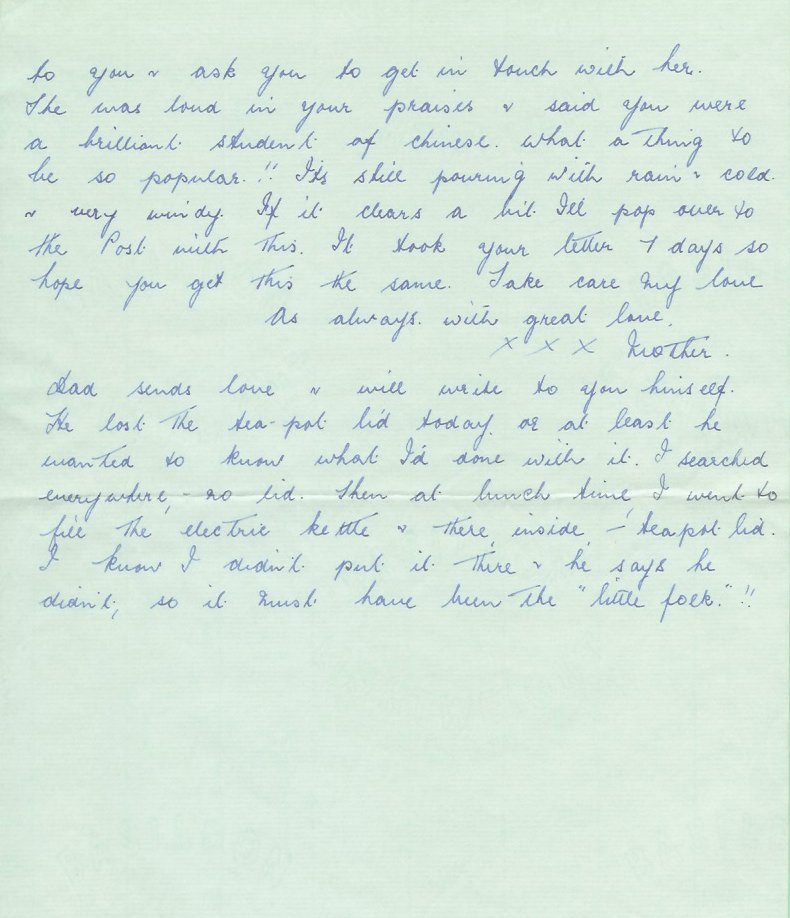 to you & ask you to get in touch with her.
She was loud in your praises & said you were
a brilliant student of chinese. what a thing to
be so popular.!! It's still pouring with rain & cold.
& very windy. If it clears a bit I'll pop over to
the Post with this. It took your letter 7 days so
hope you get this the same. Take care my love
As always. with great love.
x x x Mother.
Dad sends love & will write to you himself.
He lost the tea-pot lid today, or at least he
wanted to know what I'd done with it. I searched
everywhere, - no lid. Then at lunch time, I went to
fill the electric kettle & there, inside, - teapot lid.
I know I didn't put it there & he says he
didn't, so it must have been the "little folk."!!